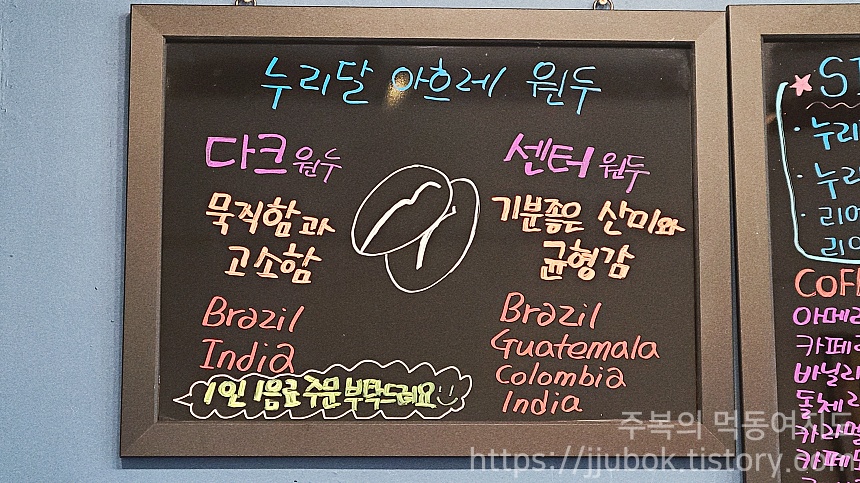 누리달 아흐레 원두
다크 원두
묵직함과
고소함
Brazil
India
1인 1음료 주문 부탁드려요
센터 원두
기분좋은 산미와
균형감
Brazil
Guatemala
Colombia
India
누리
리어
COFF
아메리
카페
바닐라
돌체
카라멜
카페
주복의 먹동여시도
https://jjubok.tistory.com